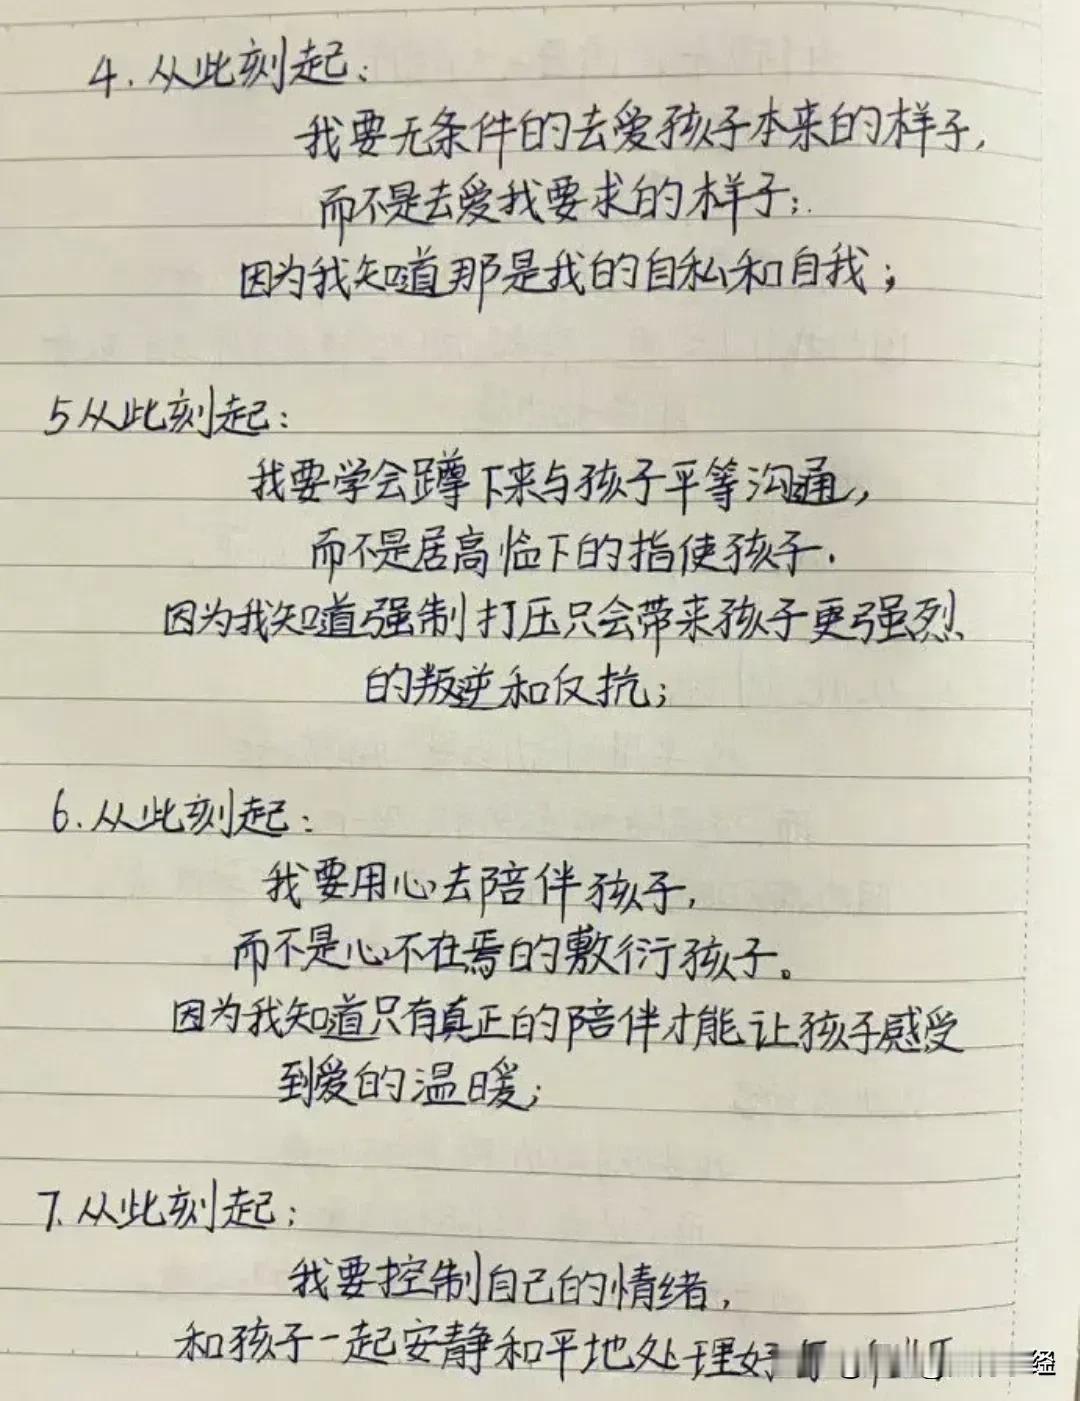 4.从此刻起:
我要无条件的去爱孩子本来的样子,
而不是去爱我要求的样子;
因为我知道那是我的自私和自我;
5从此刻起:
我要学会蹲下来与孩子平等沟通,
而不是居高临下的指使孩子.
因为我知道强制打压只会带来孩子更强烈
的叛逆和反抗;
6.从此刻起:
我要用心去陪伴孩子,
而不是心不在焉的敷衍孩子。
因为我知道只有真正的陪伴才能让孩子感受
到爱的温暖;
7.从此刻起;
我要控制自己的情绪,
和孩子一起安静和平地处理好